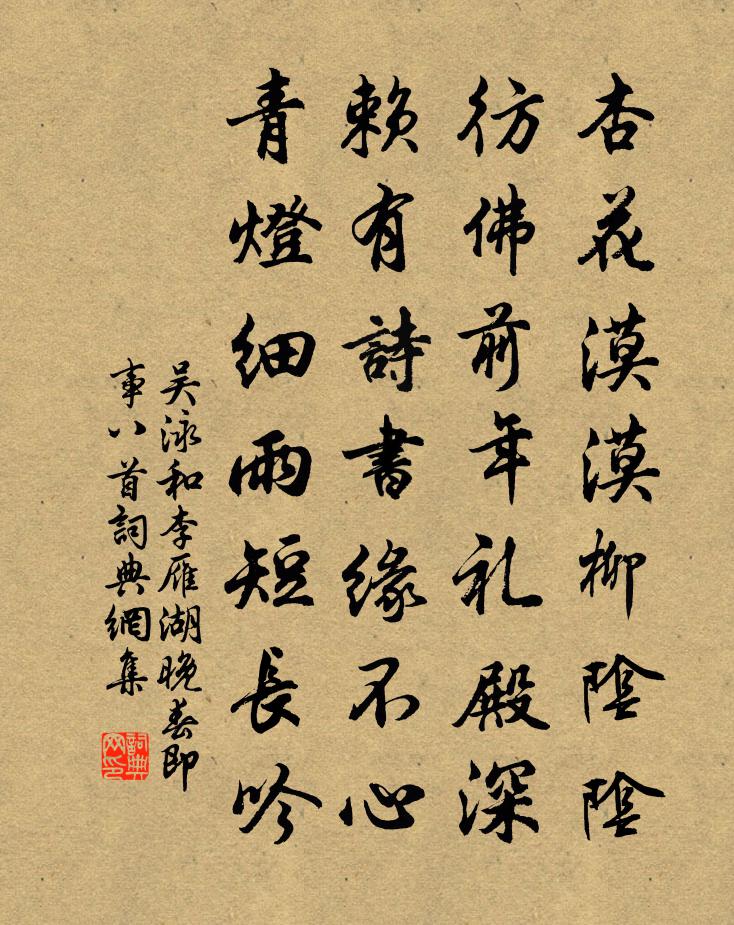 杏花漠漠柳陰陰
彷佛前年礼殿深
賴有詩書緣不心
青燈細雨短長吟
吴泳和李雁湖晚春即
事八首詞典網集
詞典网印